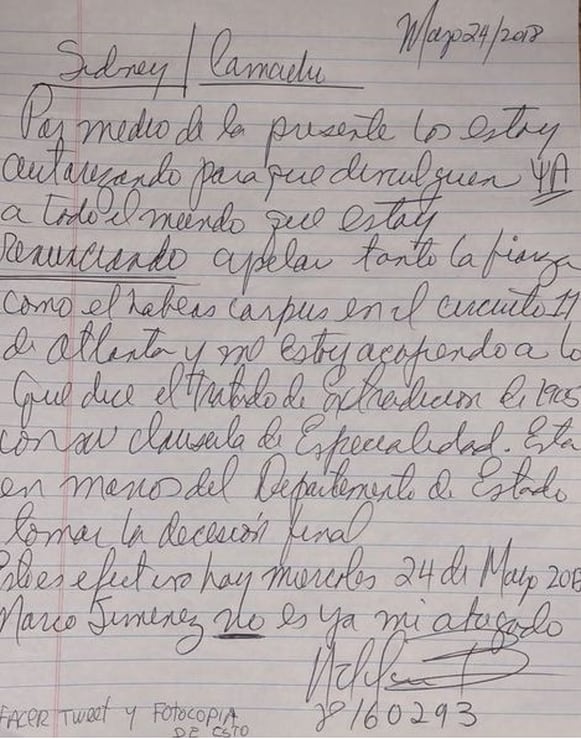 Mayo 24/2018
Sidney / Camachu
Por medio de la presente los estoy
autorizando para que divulguen YA
a todo el mundo que estoy
Renunciando apelar tanto la fianza
como el habeas corpus en el circuito 11
de Atlanta y me estoy acogiendo a lo
que dice el tratado de Extradicion de 1905
con su clausula de Especialidad. Esta
en manos del Departamento de Estado
tomar la decision final
Esto es efectivo hoy miercoles 24 de Mayo 2018
Marco Jimenez no es ya mi abogado
78160293
FACER TWEET Y FOTOCOPIA
DE ESTO